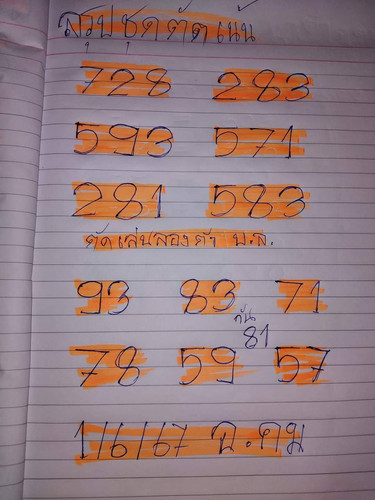 สรุปชุดตัดเน้น
728 283
593 571
281 583
ตัดเล่นสองตัว บ.ล.
93 83 71
กัน
81
78 59 57
1/6/67 อ.คม